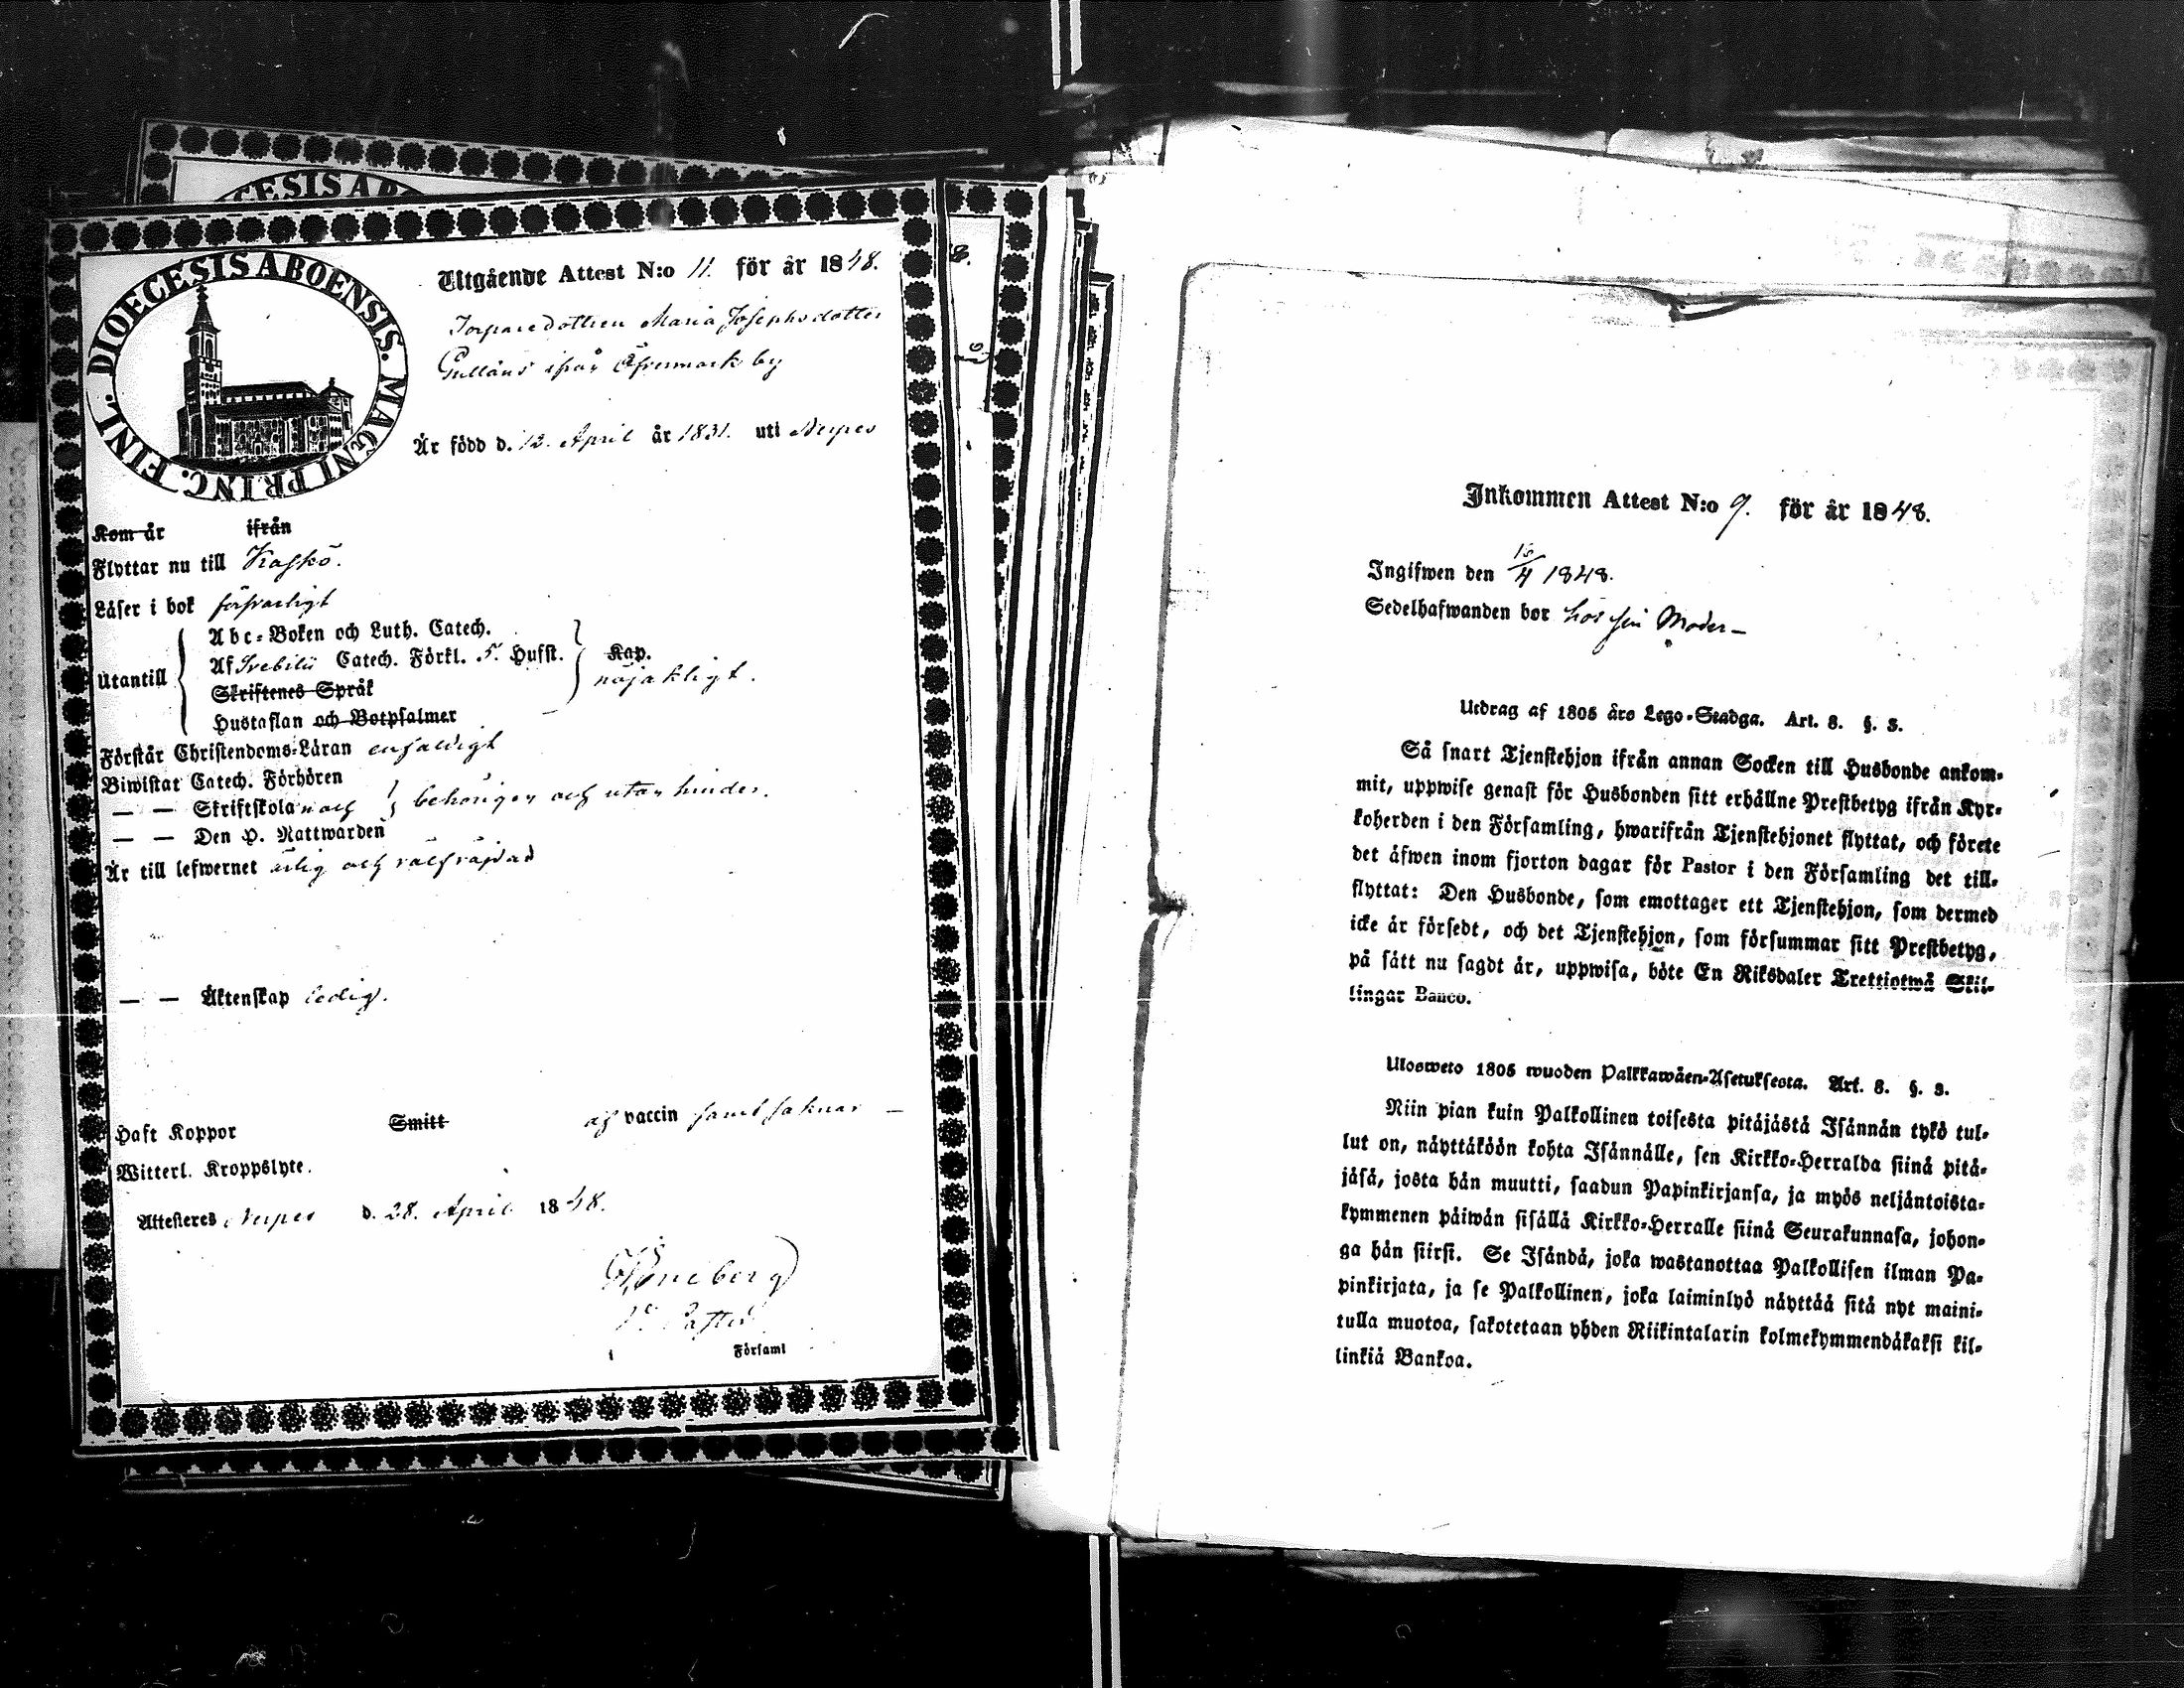 CESIS AB
DIOECESIS ABOENSIS. MAGNI PRINC. FINL.
Utgående Attest N:o 11. för år 1848.
Torparedottren Maria Josephsdotter
ifrån Öfvermark by
Är född d. 12. April år 1831. uti Nerpes
Kom år ifrån
Flyttar nu till Kaskö.
Läser i bok försvarligt
Utantill
Abc-Boken och Luth. Catech.
Af Svebilii Catech. Förkl. 5. Hufst. Kap.
Skriftenes Språk nöjaktigt.
Hustaflan och Botpsalmer
Förstår Christendoms-Läran enfaldigt
Biwistat Catech. Förhören
— — Skriftskolan och behörigen och utan hinder.
— — Den H. Nattwarden
Är till lefwernet ärlig och välfräjdad
— — Äktenskap ledig.
Haft Koppor Smitt af vaccin samt saknar —
Witterl. Kroppslyte.
Attesteres Nerpes d. 28. April 1848.
V. Pastor
Församl
Inkommen Attest N:o 9. för år 1848.
Ingifwen den /4 1848.
Sedelhafwanden bor hos sin Moder —
Utdrag af 1805 års Lego-Stadga. Art. 8. §. 3.
Så snart Tjenstehjon ifrån annan Socken till Husbonde ankom-
mit, uppwise genast för Husbonden sitt erhållne Prestbetyg ifrån Kyr-
koherden i den Församling, hwarifrån Tjenstehjonet flyttat, och förete
det äfwen inom fjorton dagar för Pastor i den Församling det till-
flyttat: Den Husbonde, som emottager ett Tjenstehjon, som dermed
icke är försedt, och det Tjenstehjon, som försummar sitt Prestbetyg,
på sätt nu sagdt är, uppwisa, böte En Riksdaler Trettiotwå Skil-
lingar Banco.
Ulosweto 1805 wuoden Palkkawäen-Asetuksesta. Art. 8. §. 3.
Niin pian kuin Palkollinen toisesta pitäjästä Isännän tykö tul-
lut on, näyttäköön kohta Isännälle, sen Kirkko-Herralda siinä pitä-
jäsä, josta hän muutti, saadun Papinkirjansa, ja myös neljäntoista-
kymmenen päiwän sisällä Kirkko-Herralle siinä Seurakunnasa, johon-
ga hän siirsi. Se Isändä, joka wastanottaa Palkollisen ilman Pa-
pinkirjata, ja se Palkollinen, joka laiminlyö näyttää sitä nyt maini-
tulla muotoa, sakotetaan yhden Riikintalarin kolmekymmendäkaksi kil-
linkiä Bankoa.